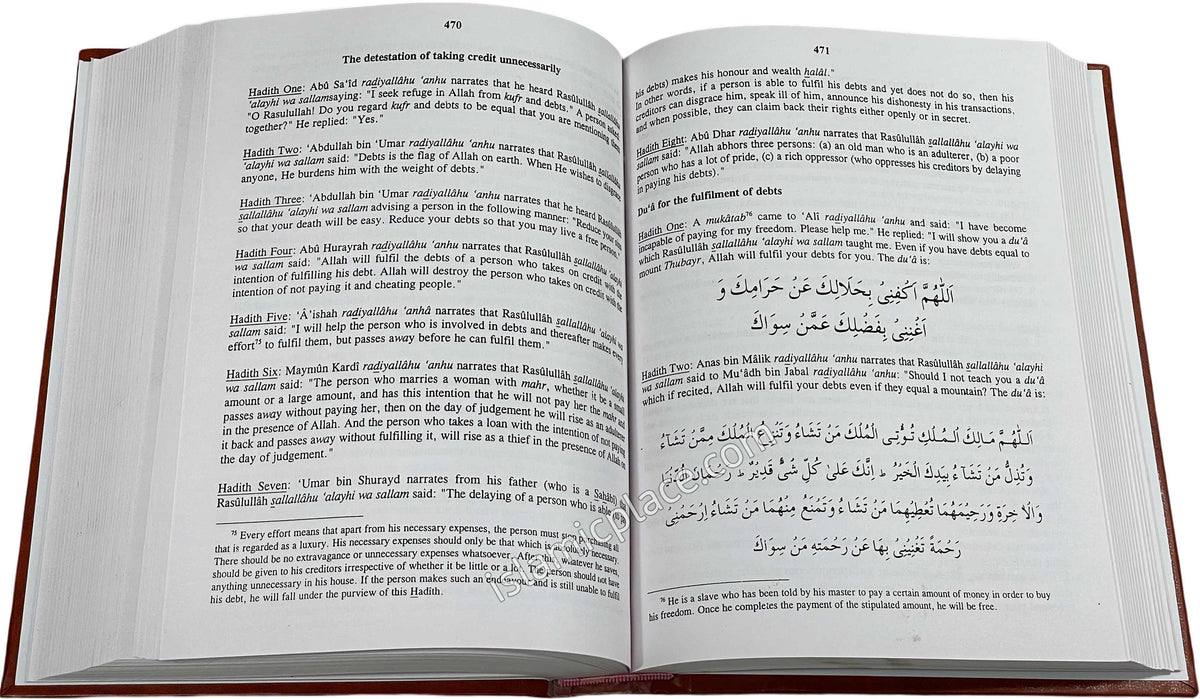 470
The detestation of taking credit unnecessarily
Hadith One: Abû Sa‘îd radiyallâhu ‘anhu narrates that he heard Rasûlullâh sallallâhu
‘alayhi wa sallamsaying: "I seek refuge in Allah from kufr and debts." A person asked
"O Rasulullah! Do you regard kufr and debts to be equal that you are mentioning them
together?" He replied: "Yes."
Hadith Two: ‘Abdullah bin ‘Umar radiyallâhu ‘anhu narrates that Rasûlullâh sallallâhu
‘alayhi wa sallam said: "Debts is the flag of Allah on earth. When He wishes to disgrace
anyone, He burdens him with the weight of debts."
Hadith Three: ‘Abdullah bin ‘Umar radiyallâhu ‘anhu narrates that he heard Rasûlullâh
sallallâhu ‘alayhi wa sallam advising a person in the following manner: "Reduce your sins
so that your death will be easy. Reduce your debts so that you may live a free person."
Hadith Four: Abû Hurayrah radiyallâhu ‘anhu narrates that Rasûlullâh sallallâhu ‘alayhi
wa sallam said: "Allah will fulfil the debts of a person who takes on credit with the
intention of fulfilling his debt. Allah will destroy the person who takes on credit with the
intention of not paying it and cheating people."
Hadith Five: ‘Â’ishah radiyallâhu ‘anhâ narrates that Rasûlullâh sallallâhu ‘alayhi wa
sallam said: "I will help the person who is involved in debts and thereafter makes every
effort75 to fulfil them, but passes away before he can fulfil them."
Hadith Six: Maymûn Kardî radiyallâhu ‘anhu narrates that Rasûlullâh sallallâhu ‘alayhi
wa sallam said: "The person who marries a woman with mahr, whether it be a small
amount or a large amount, and has this intention that he will not pay her the mahr and
passes away without paying her, then on the day of judgement he will rise as an adulterer
in the presence of Allah. And the person who takes a loan with the intention of not paying
it back and passes away without fulfilling it, will rise as a thief in the presence of Allah on
the day of judgement."
Hadith Seven: ‘Umar bin Shurayd narrates from his father (who is a Sahâbî)
Rasûlullâh sallallâhu ‘alayhi wa sallam said: "The delaying of a person who is able to
75 Every effort means that apart from his necessary expenses, the person must stop purchasing all
that is regarded as a luxury. His necessary expenses should only be that which is absolutely necessary.
There should be no extravagance or unnecessary expenses whatsoever. After this, whatever he saves,
should be given to his creditors irrespective of whether it be little or a lot. The person should not have
anything unnecessary in his house. If the person makes such an endeavour and is still unable to fulfil
his debt, he will fall under the purview of this Hadîth.
471
his debts) makes his honour and wealth halâl."
In other words, if a person is able to fulfil his debts and yet does not do so, then his
creditors can disgrace him, speak ill of him, announce his dishonesty in his transactions,
and when possible, they can claim back their rights either openly or in secret.
Hadith Eight: Abû Dhar radiyallâhu ‘anhu narrates that Rasûlullâh sallallâhu ‘alayhi wa
sallam said: "Allah abhors three persons: (a) an old man who is an adulterer, (b) a poor
person who has a lot of pride, (c) a rich oppressor (who oppresses his creditors by delaying
in paying his debts)."
Du‘â for the fulfilment of debts
Hadith One: A mukâtab76 came to ‘Alî radiyallâhu ‘anhu and said: "I have become
incapable of paying for my freedom. Please help me." He replied: "I will show you a du‘â
which Rasûlullâh sallallâhu ‘alayhi wa sallam taught me. Even if you have debts equal to
mount Thubayr, Allah will fulfil your debts for you. The du‘â is:
اَللّٰهُمَّ اَكْفِنِىْ بِحَلَالِكَ عَنْ حَرَامِكَ وَ
اَغْنِنِىْ بِفَضْلِكَ عَمَّنْ سِوَاكَ
Hadith Two: Anas bin Mâlik radiyallâhu ‘anhu narrates that Rasûlullâh sallallâhu ‘alayhi
wa sallam said to Mu‘âdh bin Jabal radiyallâhu ‘anhu: "Should I not teach you a du‘â
which if recited, Allah will fulfil your debts even if they equal a mountain? The du‘â is:
اَللّٰهُمَّ مَالِكَ الْمُلْكِ تُؤْتِى الْمُلْكَ مَنْ تَشَاءُ وَتَنْزِعُ الْمُلْكَ مِمَّنْ تَشَآءُ
وَتُذِلُّ مَنْ تَشَآءُ بِيَدِكَ الْخَيْرُ ط اِنَّكَ عَلٰى كُلِّ شَىْءٍ قَدِيْرٌ ط رَحْمَانَ الدُّنْيَا
وَالْاٰخِرَةِ وَرَحِيْمَهُمَا تُعْطِيْهِمَا مَنْ تَشَاءُ وَتَمْنَعُ مِنْهُمَا مَنْ تَشَاءُ اِرْحَمْنِىْ
رَحْمَةً تُغْنِيْنِىْ بِهَا عَنْ رَحْمَتِهِ مَنْ سِوَاكَ
76 He is a slave who has been told by his master to pay a certain amount of money in order to buy
his freedom. Once he completes the payment of the stipulated amount, he will be free.
islamicplace.com